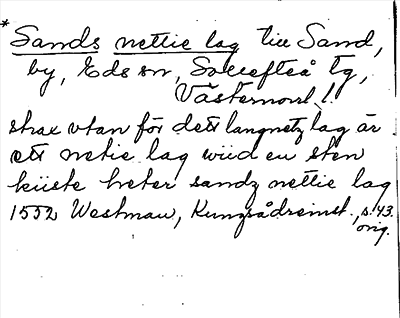 * Sands nettie lag till Sand,
by, Eds sn, Sollefteå tg,
Västernorrl. l.
strax vtan för dett langnetz lag är
ett netie lag wiid en sten
kiiste heter sandz nettie lag
1552 Westman, Kungsådreinst., s. 43.
orig.